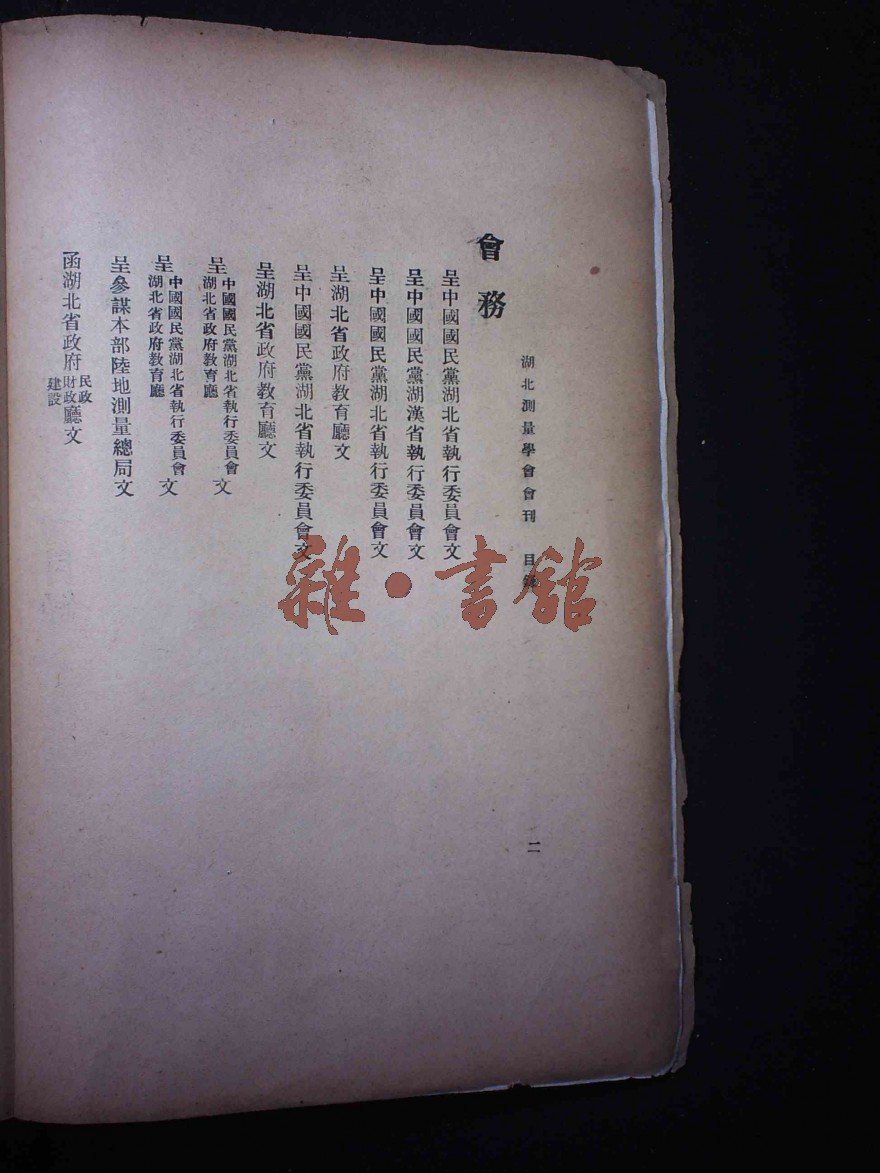 湖北測量學會會刊 目錄
二
會務
呈中國國民黨湖北省執行委員會文
呈中國國民黨湖漢省執行委員會文
呈中國國民黨湖北省執行委員會文
呈湖北省政府教育廳文
呈中國國民黨湖北省執行委員會文
呈湖北省政府教育廳文
呈中國國民黨湖北省執行委員會湖北省政府教育廳文
呈中國國民黨湖北省執行委員會湖北省政府教育廳文
呈參謀本部陸地測量總局文
函湖北省政府民政財政建設廳文
雜·書館